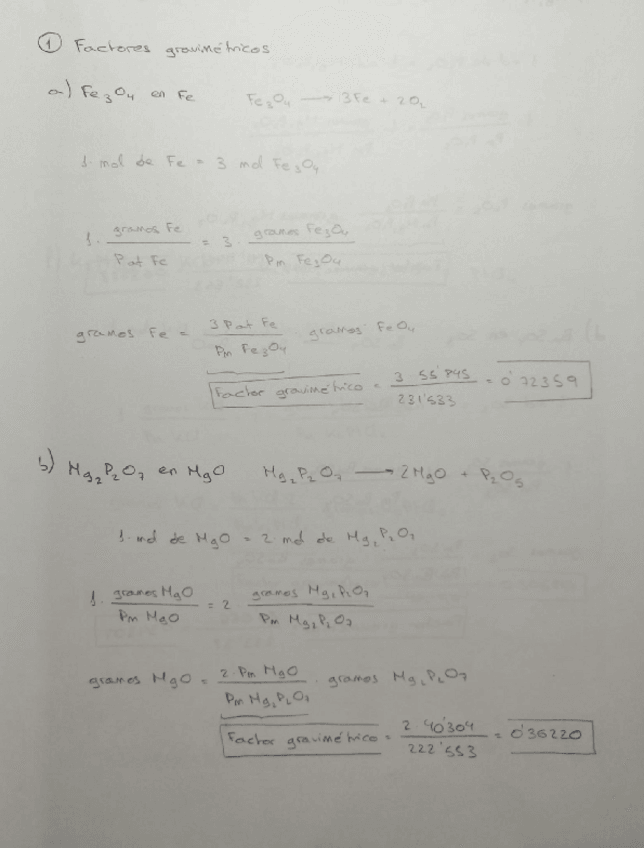 1 Factores gravimétricos
a) Fe3O4 en Fe Fe3O4 → 3Fe + 2O2
1· mol de Fe = 3 mol Fe3O4
1· gramos Fe / Pat Fe = 3· gramos Fe3O4 / Pm Fe3O4
gramos Fe = 3 Pat Fe / Pm Fe3O4 · gramos FeO4
Factor gravimétrico = 3 55'845 / 231'533 = 0'72359
b) Mg2P2O7 en MgO Mg2P2O7 → 2MgO + P2O5
1·mol de MgO = 2·mol de Mg2P2O7
1· gramos MgO / Pm MgO = 2 gramos Mg2P2O7 / Pm Mg2P2O7
gramos MgO = 2·Pm MgO / Pm Mg2P2O7 · gramos Mg2P2O7
Factor gravimétrico = 2 40'304 / 222'553 = 0'36220